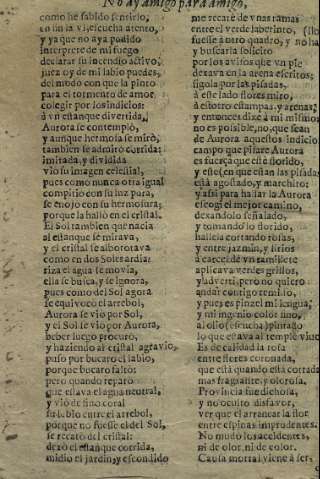 No ay amigo para amigo,
como he sabido sentirlo,
tu en la vi, escucha atento,
y ya que no aya podido
interprete de mi fuego
declarar su incendio activo,
juzgo y de mi labio puedes,
del modo con que la pinto
para el tormento de amor
colegir por los indicios:
à vn estanque divertida,
Aurora se contemplò,
y aunque hermosa se mirò,
tambien se admirò corrida:
imitada, y dividida
viò su imagen celestial,
pues como nunca otra igual
compitiò con su luz pura,
se enojò con su hermosura,
porque la hallò en el cristal.
El Sol tambien que nacia
al estanque se mirava,
y el cristal se alborotava
como en dos Soles ardia:
riza el agua se movia,
ella se busca, y se ignora,
pues como del Sol agora
se equivocò el arrebol,
Aurora se viò por Sol,
y el Sol se viò por Aurora,
beber luego procurò,
y haziendo al cristal agravio,
puso por bucaro el labio,
porque bucaro faltò:
pero quando reparò
que estava el agua neutral,
y viò de fino coral
su labio entre el arrebol,
porque no fuesse el del Sol,
se recatò del cristal:
dexò el estanque corrida,
midiò el jardin, y escondido
me recatè de vnas ramas
entre el verde laberinto,
fuesse à otro quadro, y no
y buscarla solicito
por los avisos que vn pie
dexava en la arena escritos;
sigola por las pisadas,
à este lado flores miro,
à essotro estampas, y arenas;
y entonces dixe à mi mismo:
no es posible, no, que sean
de Aurora aquestos indicios:
campo que pisare Aurora
es fuerça que estè florido,
y este (en que estàn las pisadas)
està agostado, y marchito:
y assi para hallar la Aurora
escogì el mejor camino,
dexandolo señalado,
y tomando lo florido,
hallela cortando rosas,
y entre jazmin, y lirios
à carcel de vn ramillete
aplicava verdes grillos,
y advertì, pero no quiero
andar contigo remiso,
y pues es pinzel mi lengua,
y mi ingenio color fino,
al olio (escucha) pintarlo
lo que estava al temple vivo.
Es de calidad la rosa
entre flores coronada,
que està quando està cortada
mas fragrante, y olorosa.
Provincia fue dichosa,
y no oculto disfavor,
ver que el arrancar la flor
entre espinas imprudentes.
No mudò los accidentes,
ni de olor, ni de color.
Causa mortal viene à ser,